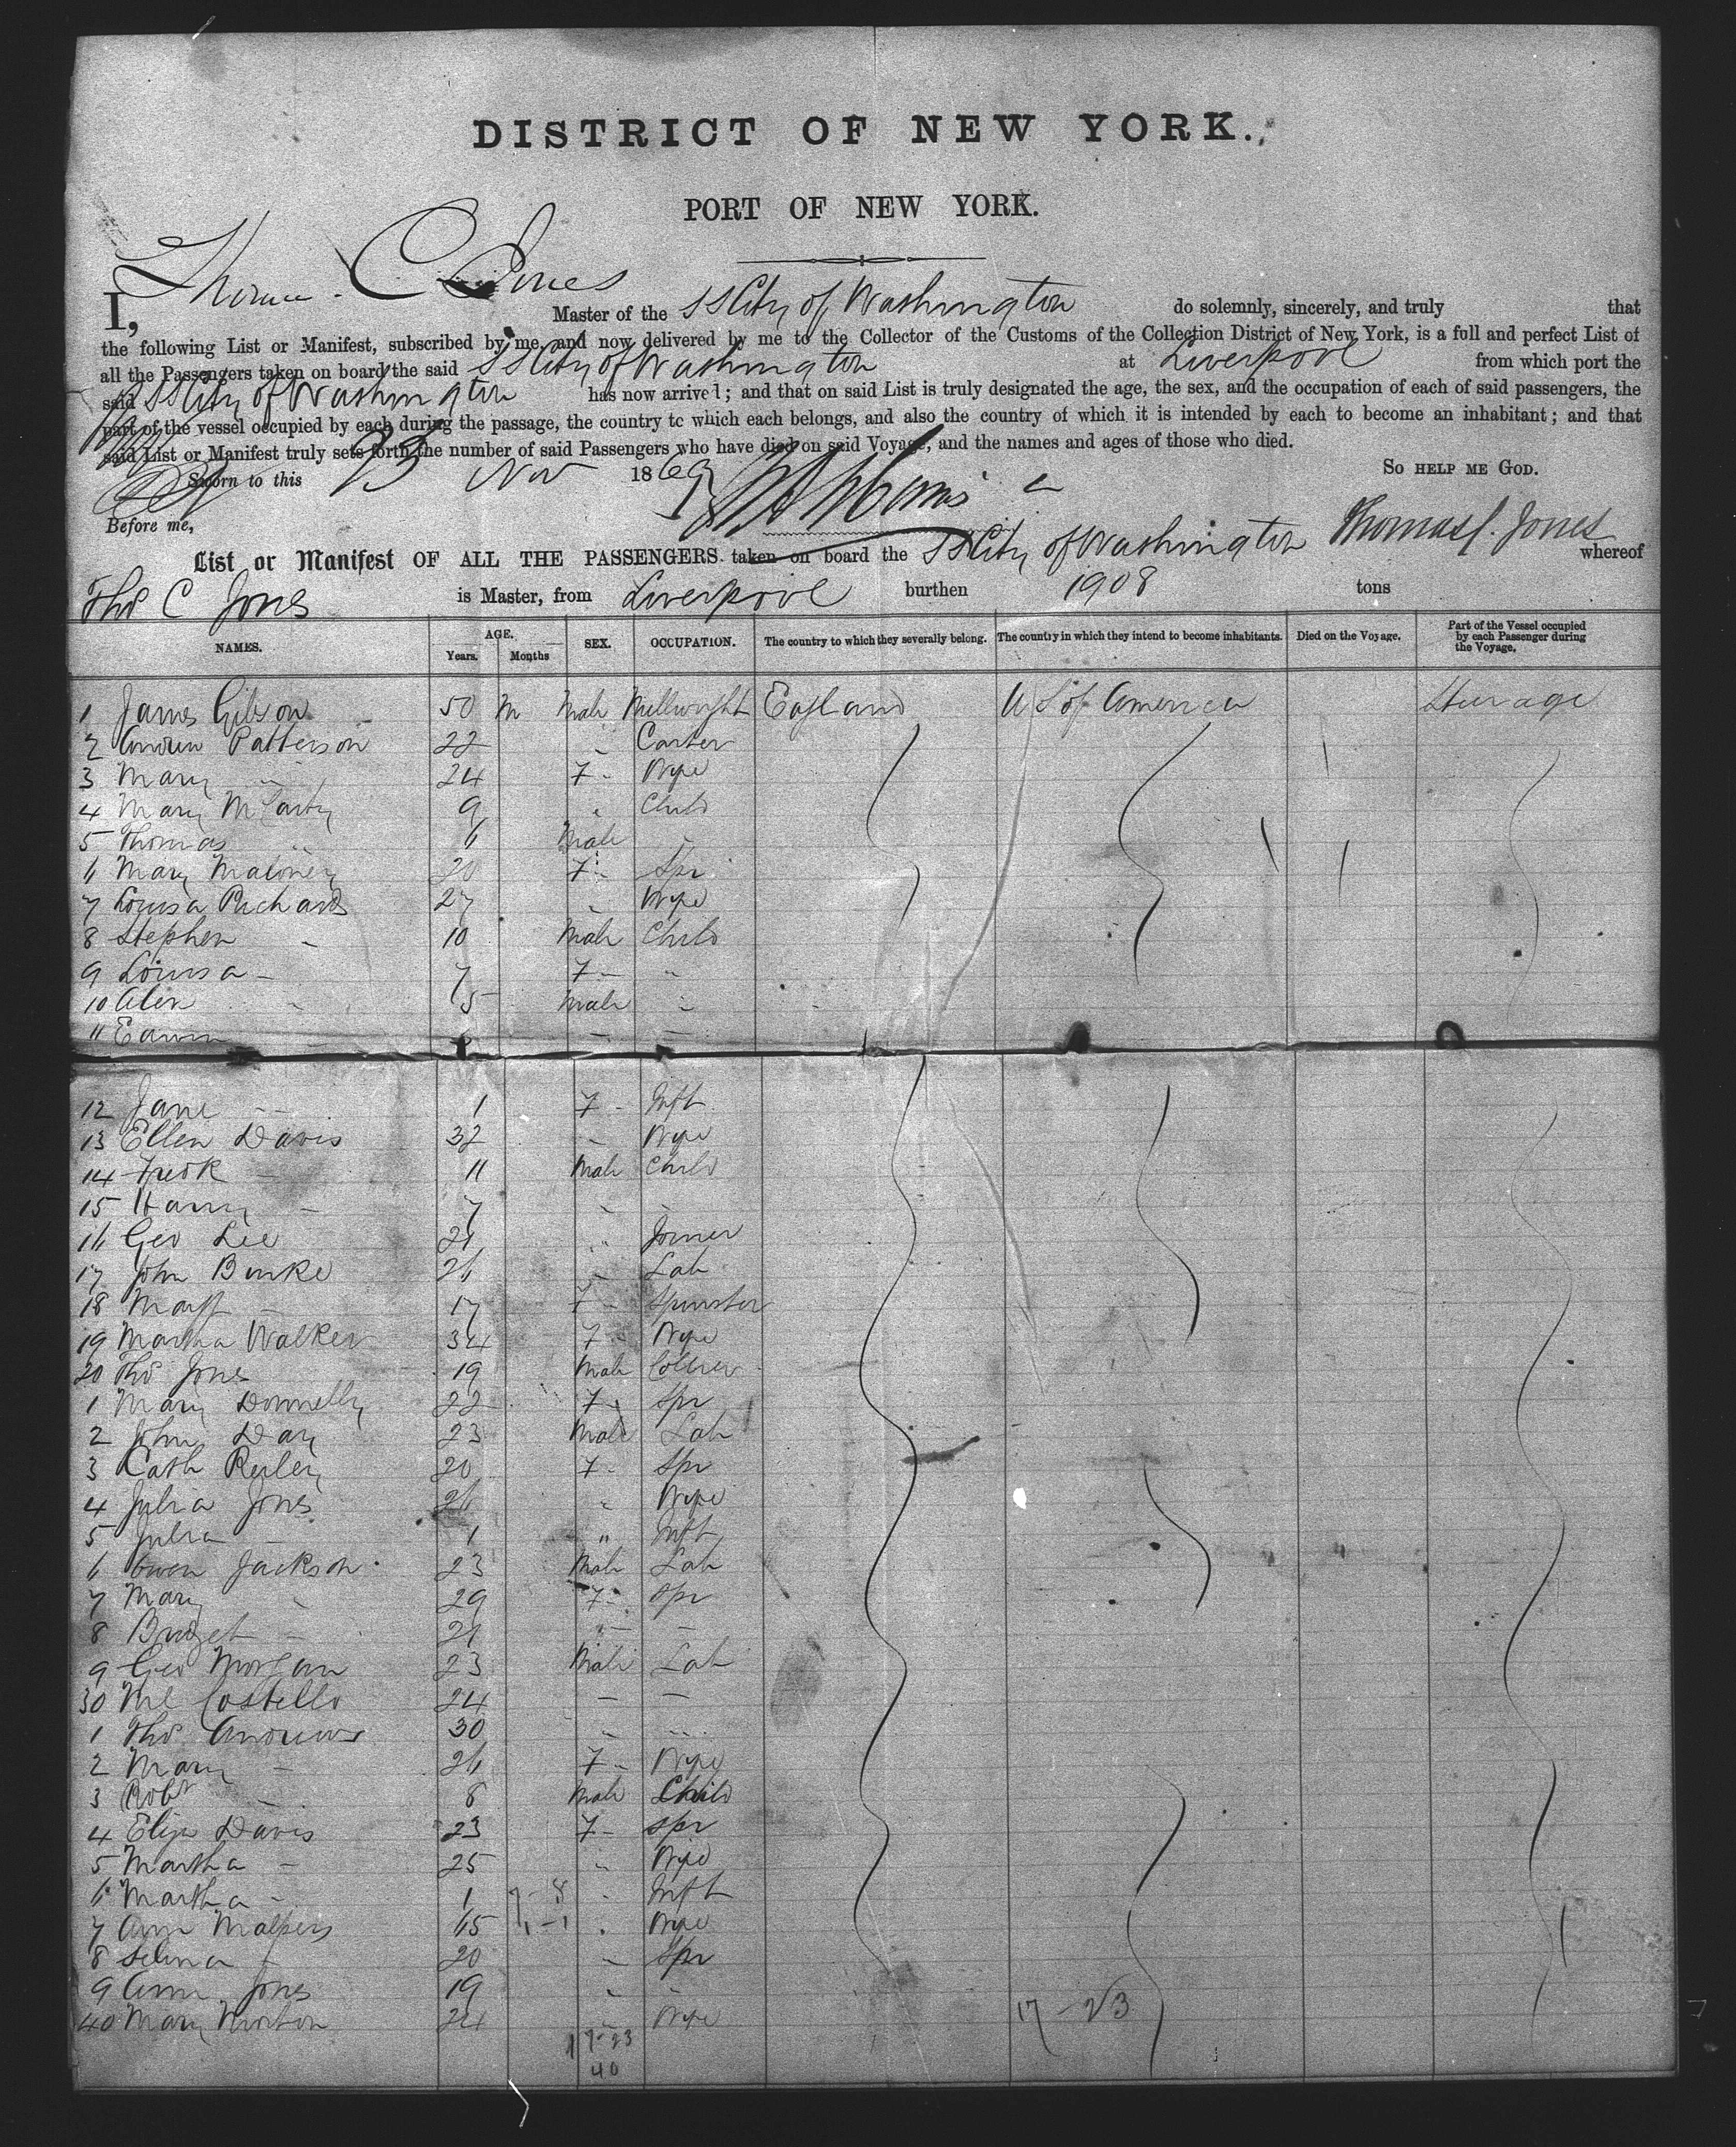 DISTRICT OF NEW YORK.
PORT OF NEW YORK.
I, Thomas C Jones Master of the SS City of Washington do solemnly, sincerely, and truly that
the following List or Manifest, subscribed by me, and now delivered by me to the Collector of the Customs of the Collection District of New York, is a full and perfect List of
all the Passengers taken on board the said SS City of Washington at Liverpool from which port the
said SS City of Washington has now arrived; and that on said List is truly designated the age, the sex, and the occupation of each of said passengers, the
part of the vessel occupied by each during the passage, the country to which each belongs, and also the country of which it is intended by each to become an inhabitant; and that
said List or Manifest truly sets forth the number of said Passengers who have died on said Voyage, and the names and ages of those who died.
Sworn to this 23 Nov 1869 So help me God.
Before me, Thomas C. Jones
List or Manifest OF ALL THE PASSENGERS taken on board the SS City of Washington whereof
Thos C Jones is Master, from Liverpool burthen 1908 tons
NAMES. AGE. Years. Months SEX. OCCUPATION. The country to which they severally belong. The country in which they intend to become inhabitants. Died on the Voyage. Part of the Vessel occupied by each Passenger during the Voyage.
1 James Gibson 50 m Male Millwright England U S of America Steerage
2 Andrew Patterson 22 " Carter
3 Mary " 24 F " Wife
4 Mary McCarty 9 " Child
5 Thomas " 6 Male "
6 Mary Maloney 20 F " Spr
7 Louisa Richards 27 " Wife
8 Stephen - 10 Male Child
9 Louisa - 7 F - "
10 Alen - 5 Male "
11 Edwin - - -
12 Jane - - 1 F - Inft
13 Ellen Davis 32 - Wife
14 Fredk - 11 Male Child
15 Harry - 7 " "
16 Geo Lee 21 " Joiner
17 John Burke 26 " Lab
18 Margt - 17 F - Spinster
19 Martha Walker 34 F - Wife
20 Thos Jones 19 Male Collier
1 Mary Donnelly 22 F - Spr
2 John Day 23 Male Lab
3 Cath Reiley 20 F - Spr
4 Julia Jones 26 " Wife
5 Julia - 1 " Inft
6 Owen Jackson 23 Male Lab
7 Mary " 29 F - Spr
8 Bridget - 21 " - -
9 Geo Morgan 23 Male Lab
30 Ml Costello 24 - -
1 Thos Andrews 30 " "
2 Mary - 26 F - Wife
3 Robt - 8 Male Child
4 Eliza Davis 23 F - Spr
5 Martha - 25 " Wife
6 Martha - 1 7-8 " Inft
7 Ann Malpers 65 1-1 " Wife
8 Selina - 20 - Spr
9 Ann Jones 19 " -
40 Mary Morton 24 " Wife 17-23
17-23
40